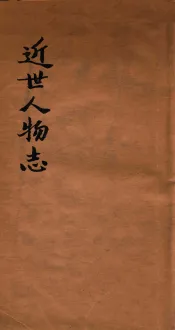 近世人物志